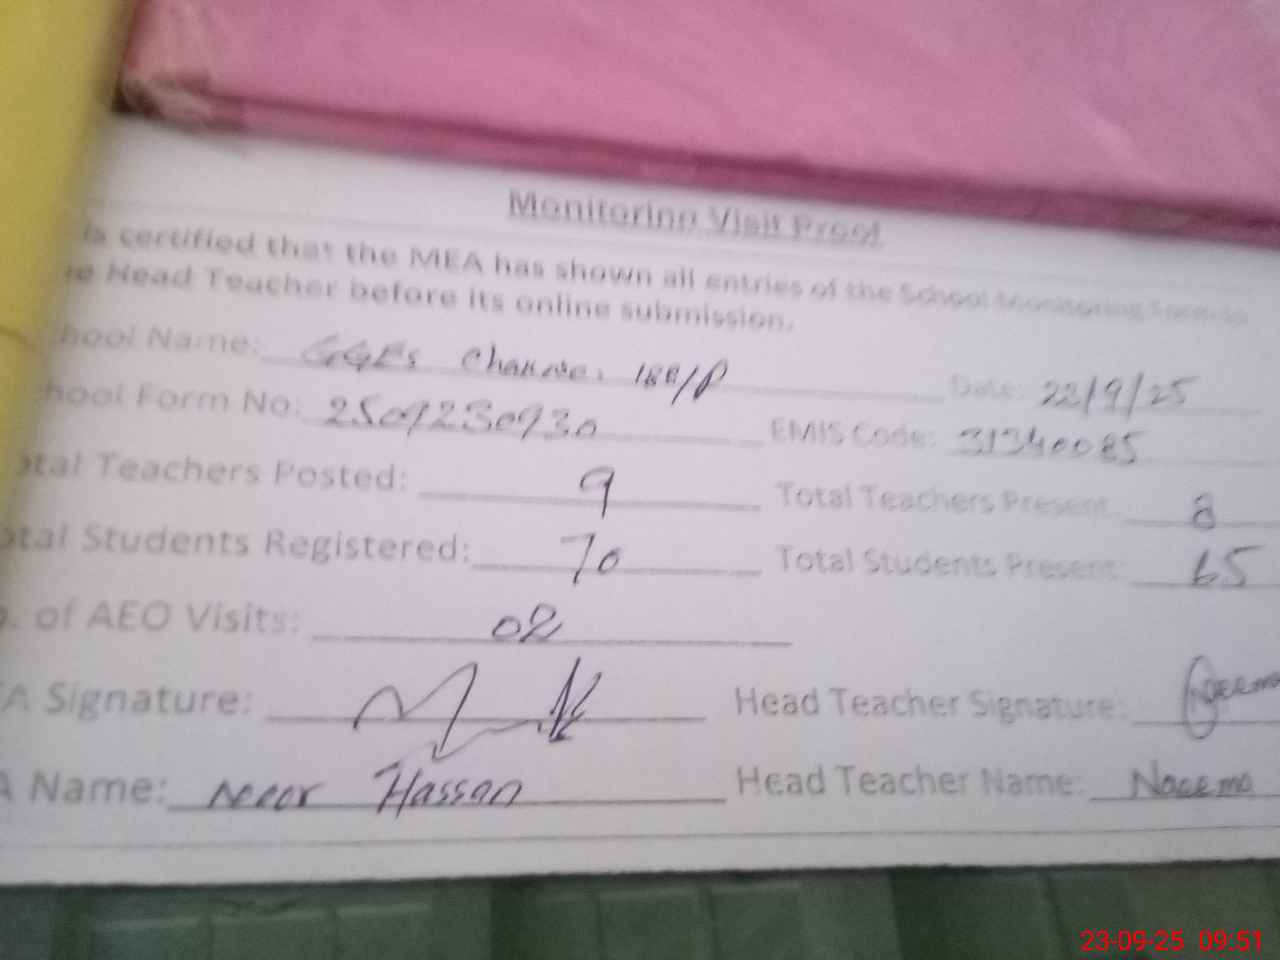 Monitoring Visit Proof
is certified that the MEA has shown all entries of the School Monitoring
Head Teacher before its online submission.
hool Name: GGES 188/P Date: 22/9/25
hool Form No: 2509230930 EMIS Code: 31340085
otal Teachers Posted: 9 Total Teachers Present: 8
otal Students Registered: 70 Total Students Present: 65
. of AEO Visits: 02
A Signature: Head Teacher Signature: Naeema
A Name: Hassan Head Teacher Name: Naeema
23-09-25 09:51